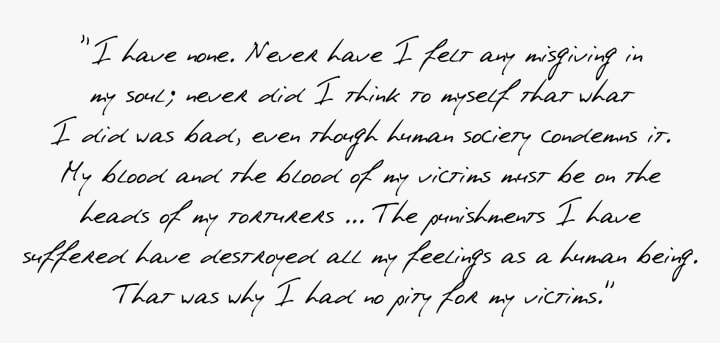 "I have none. Never have I felt any misgiving in
my soul; never did I think to myself that what
I did was bad, even though human society condemns it.
My blood and the blood of my victims must be on the
heads of my torturers ... The punishments I have
suffered have destroyed all my feelings as a human being.
That was why I had no pity for my victims."